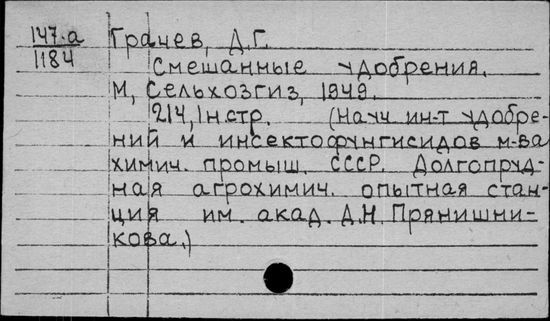 147-а Грачев, Д.Г.
1184
Смешанные удобрения.
М, Сельхозгиз, 1949.
214,1н.стр. (Науч. ин-т удобре-
ний и инсектофунгисидов м-ва
химич. промыш. СССР. Долгопруд-
ная агрохимич. опытная стан-
ция им. акад. Д.Н. Прянишни-
кова.)